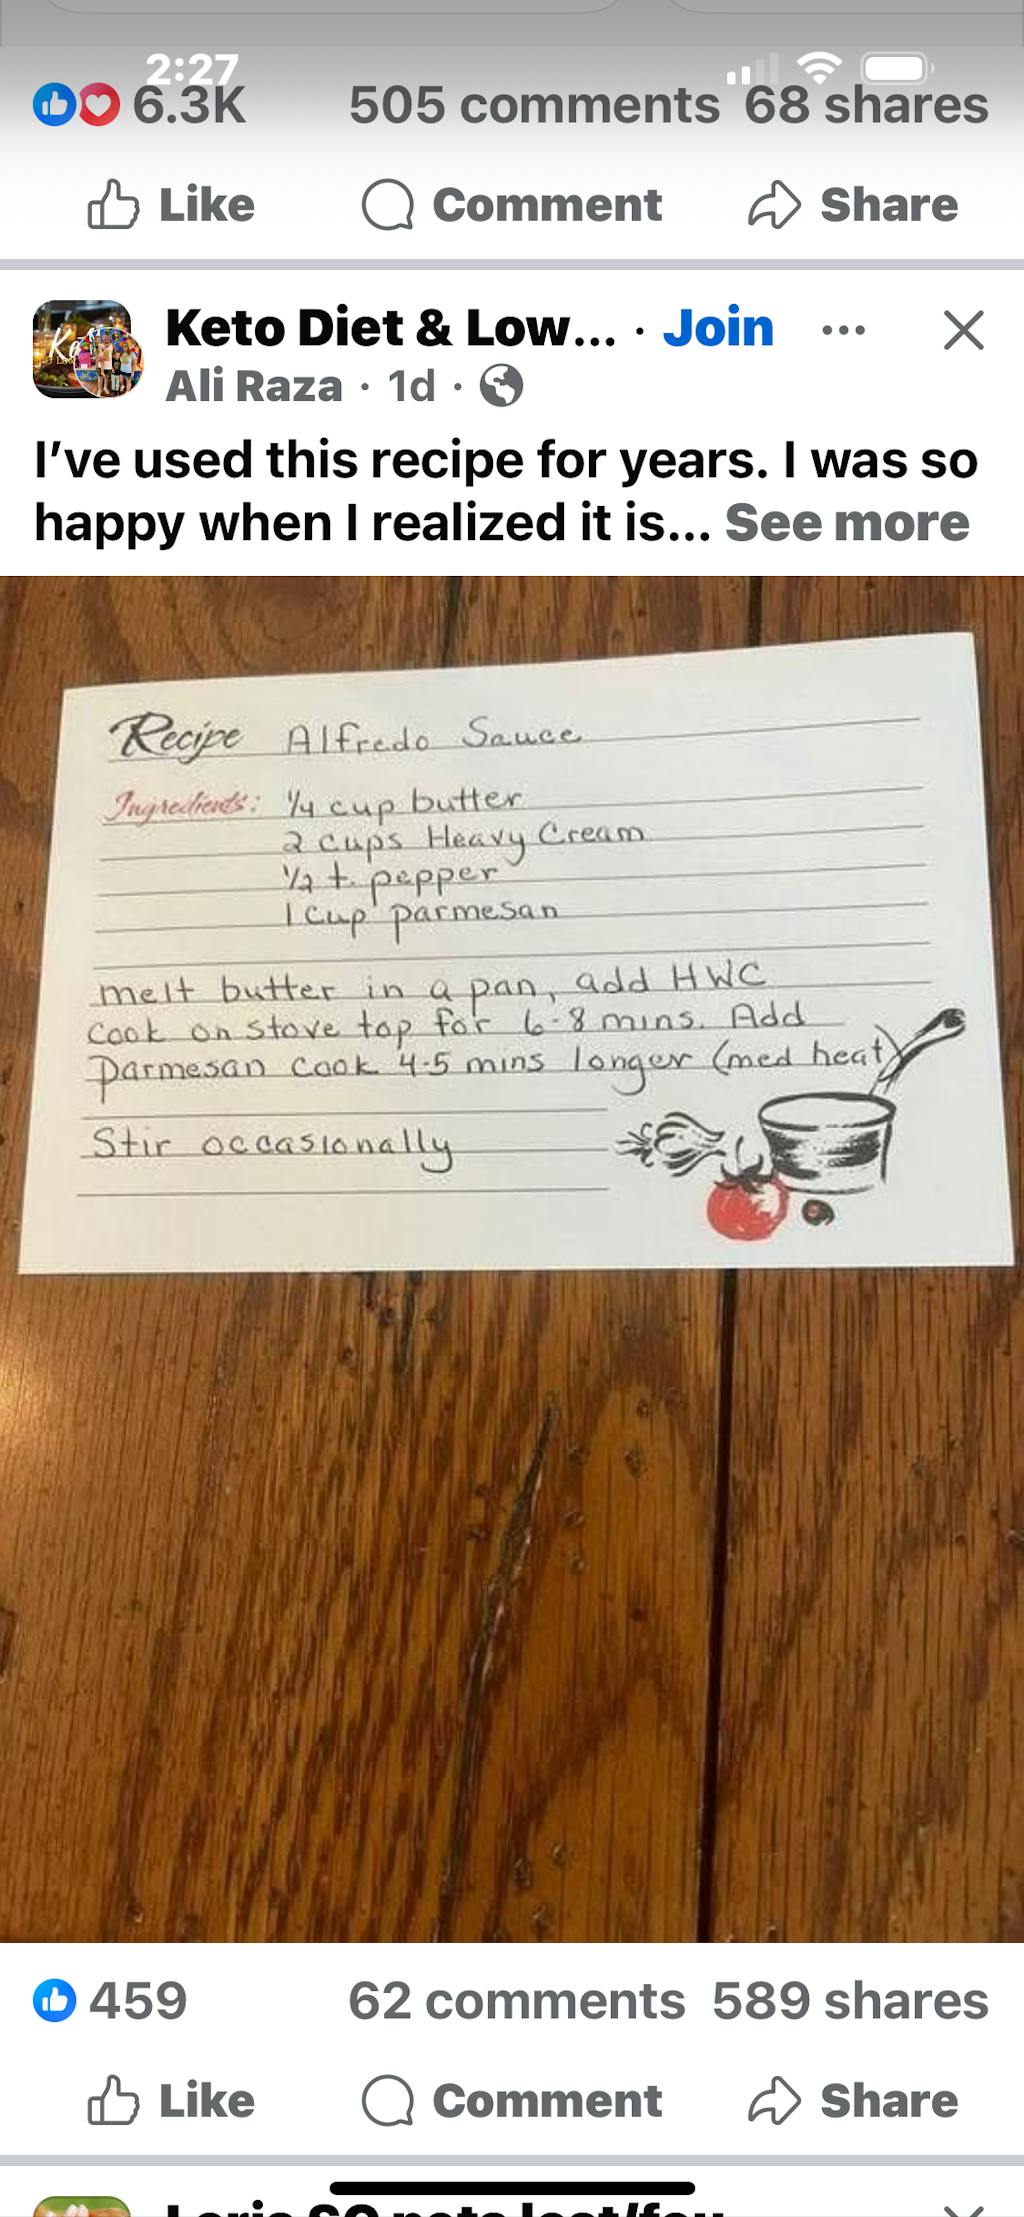 2:27
6.3K 505 comments 68 shares
Like Comment Share
Keto Diet & Low... · Join
Ali Raza · 1d ·
I've used this recipe for years. I was so
happy when I realized it is... See more
Recipe Alfredo Sauce
Ingredients: 1/4 cup butter
2 cups Heavy Cream
1/2 t. pepper
1 cup parmesan
melt butter in a pan, add HWC
cook on stove top for 6-8 mins. Add
Parmesan cook 4-5 mins longer (med heat)
Stir occasionally
459 62 comments 589 shares
Like Comment Share